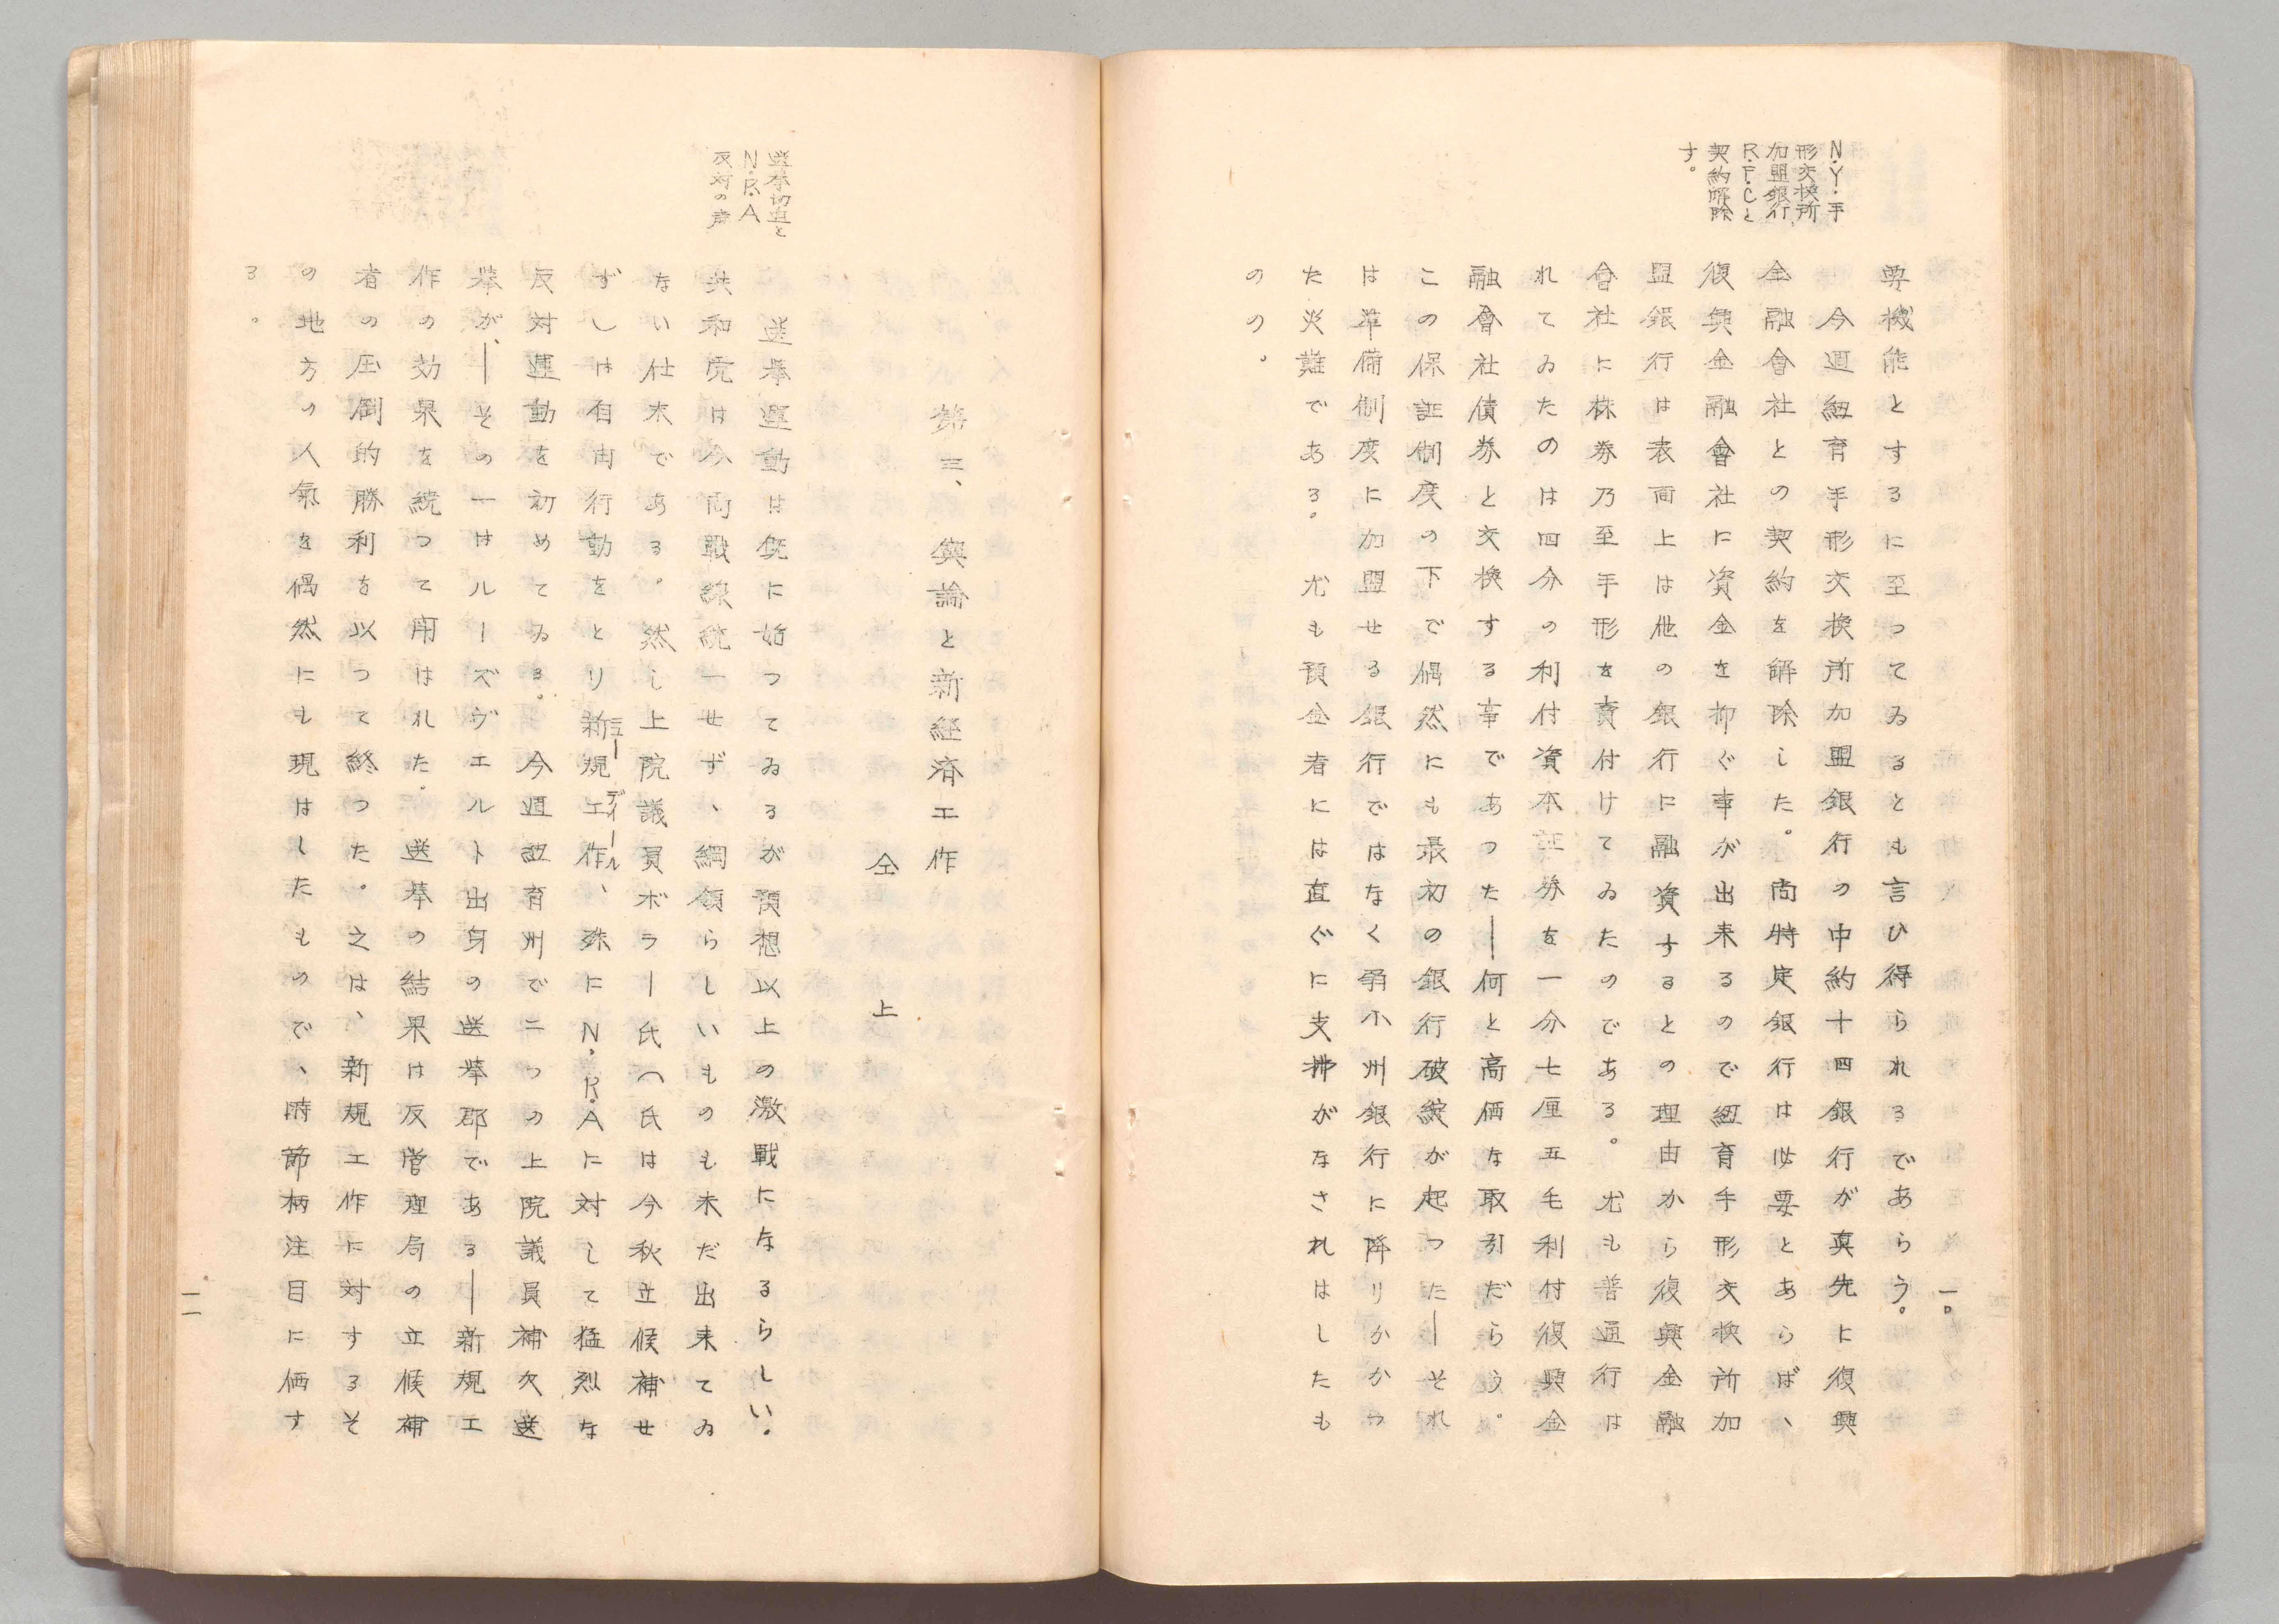 一〇
N.Y.手
形交換所
加盟銀行、
R.F.Cと
契約解除
す。
要機能とするに至つてゐるとも言ひ得られるであらう。
今週紐育手形交換所加盟銀行の中約十四銀行が真先に復興
金融會社との契約を解除した。尚特定銀行は必要とあらば、
復興金融會社に資金を仰ぐ事が出来るので紐育手形交換所加
盟銀行は表面上は他の銀行に融資するとの理由から復興金融
會社に株券乃至手形を賣付けてゐたのである。尤も普通行は
れてゐたのは四分の利付資本証券を一分七厘五毛利付復興金
融會社債券と交換する事であつた―何と高価な取引だらう。
この保証制度の下で偶然にも最初の銀行破綻が起つた―それ
は準備制度に加盟せる銀行ではなく弱小州銀行に降りかかつ
た災難である。尤も預金者には直ぐに支拂がなされはしたも
のの。
第三、輿論と新経済工作
仝 上
選挙切迫と
N.R.A
反対の声
選挙運動は既に始つてゐるが預想以上の激戦になるらしい。
共和党は今尚戰線統一せず、綱領らしいものも未だ出来てゐ
ない仕末である。然し上院議員ボラー氏(氏は今秋立候補せ
ずしは自由行動をとり新規工作、殊にN.R.Aに対して猛烈な
ニューディール
反対運動を初めてゐる。今週紐育州で二つの上院議員補欠選
挙が、―その一はルーズヴエルト出身の選挙郡である―新規工
作の効果を続つて闘はれた。選挙の結果は反管理局の立候補
者の圧倒的勝利を以つて終つた。之は、新規工作に対するそ
の地方の人氣を偶然にも現はしたもので、時節柄注目に価す
る。
一一